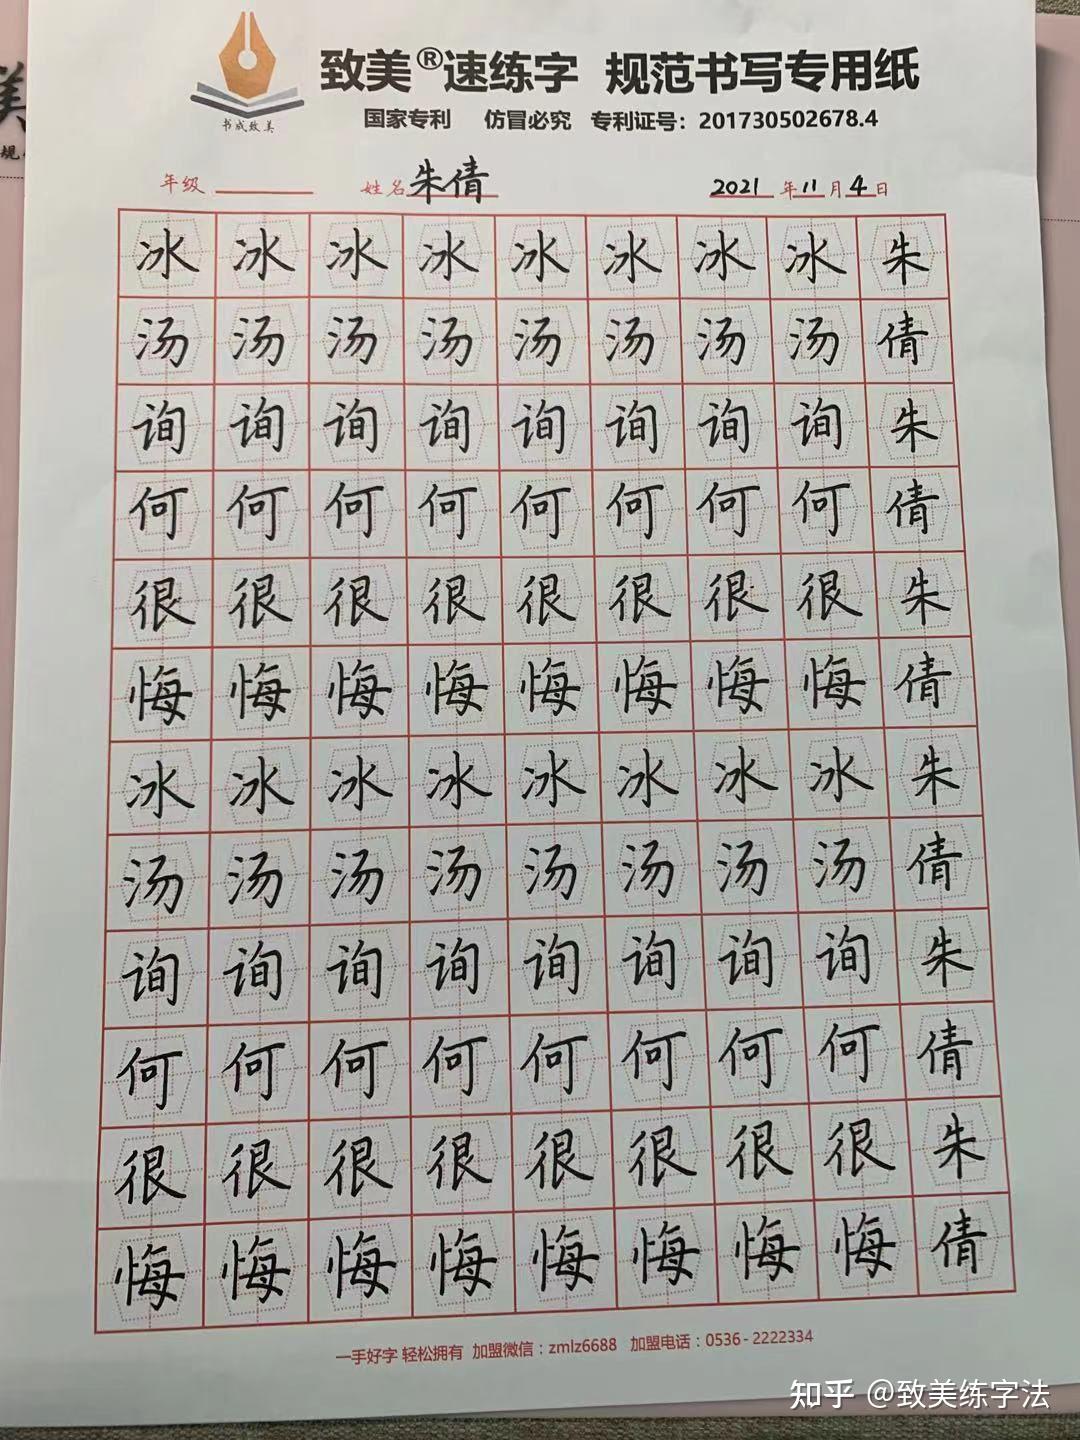 致美®速练字 规范书写专用纸
书成致美
国家专利 仿冒必究 专利证号：201730502678.4
年级 姓名 朱倩 2021 年 11 月 4 日
冰 冰 冰 冰 冰 冰 冰 冰 朱
汤 汤 汤 汤 汤 汤 汤 汤 倩
询 询 询 询 询 询 询 询 朱
何 何 何 何 何 何 何 何 倩
很 很 很 很 很 很 很 很 朱
悔 悔 悔 悔 悔 悔 悔 悔 倩
冰 冰 冰 冰 冰 冰 冰 冰 朱
汤 汤 汤 汤 汤 汤 汤 汤 倩
询 询 询 询 询 询 询 询 朱
何 何 何 何 何 何 何 何 倩
很 很 很 很 很 很 很 很 朱
悔 悔 悔 悔 悔 悔 悔 悔 倩
一手好字 轻松拥有 加盟微信：zmlz6688 加盟电话：0536-2222334
知乎 @致美练字法